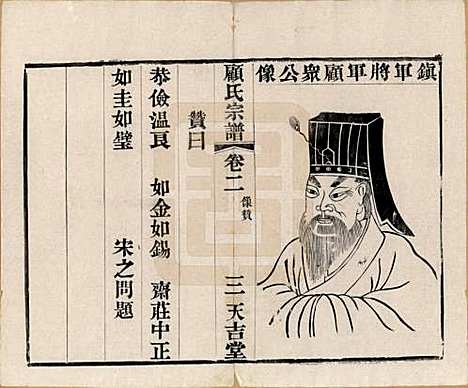 鎮軍將軍顧衆公像
顧氏宗譜 卷二 像贊 三 天吉堂
贊曰
恭儉温良 如金如錫 齋莊中正
如圭如璧 宋之問題